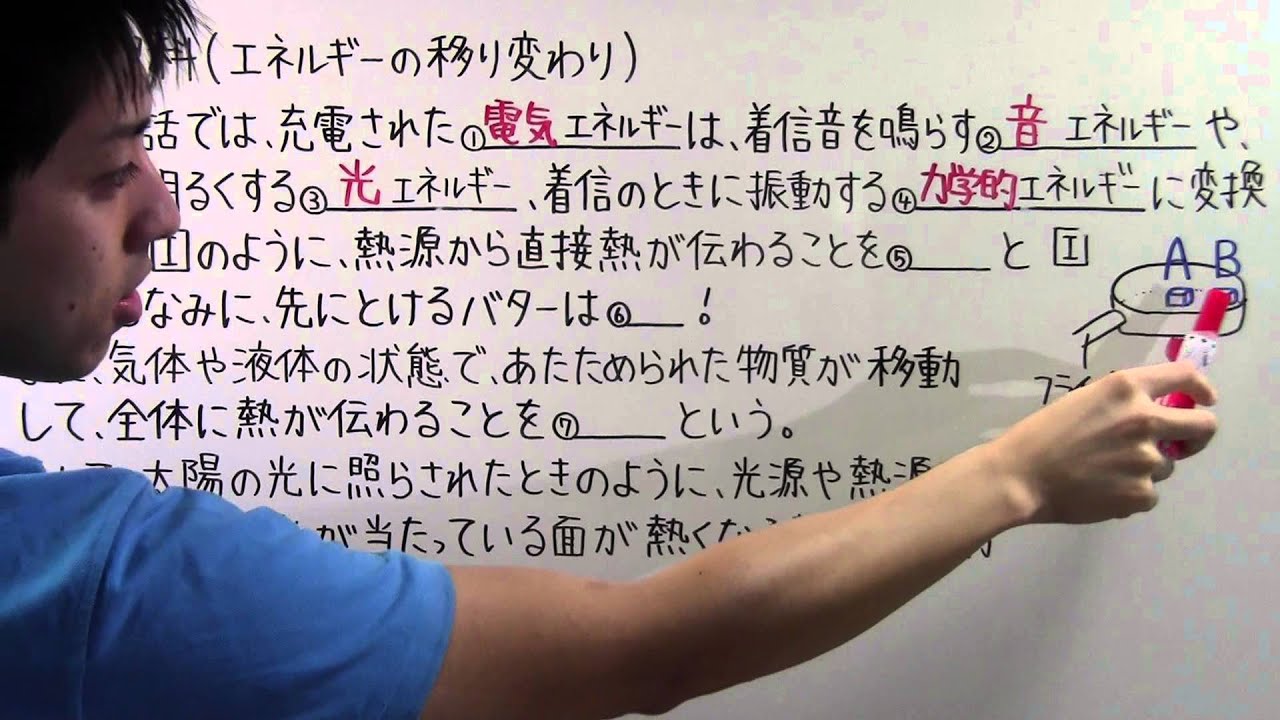 科(エネルギーの移り変わり)
話では、充電された①電気エネルギーは、着信音を鳴らす②音 エネルギーや、
明るくする③光 エネルギー、着信のときに振動する④力学的エネルギーに変換
Iのように、熱源から直接熱が伝わることを⑤____と
I
A B
なみに、先にとけるバターは⑥___!
フライ
、気体や液体の状態で、あたためられた物質が移動
して、全体に熱が伝わることを⑦____という。
太陽の光に照らされたときのように、光源や熱源
が当たっている面が熱くなる